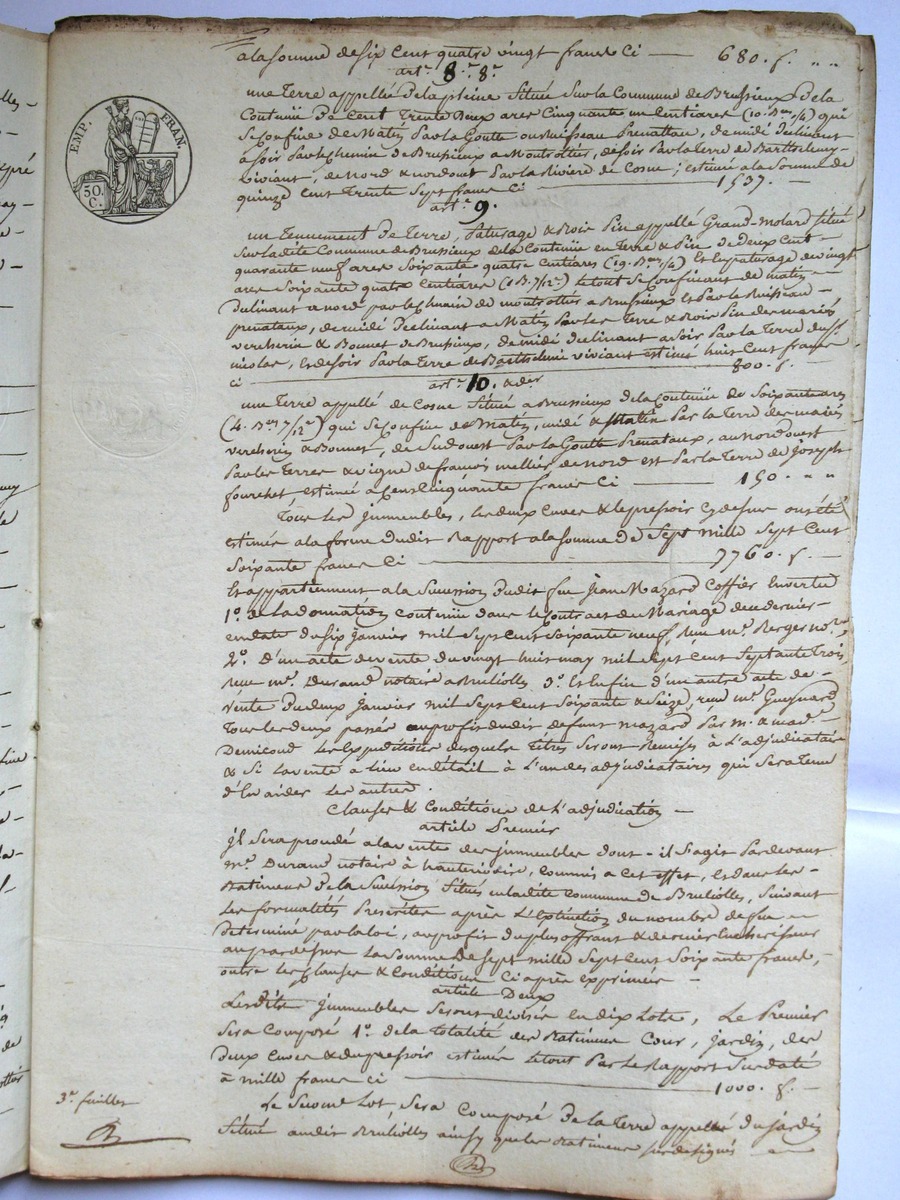 EMP. FRAN.
50. C.
a la somme de six cent quatre vingt francs ci — 680. f. " "
art.e 8. 8.e
une Terre appellée de la pleine située sur la Commune de Brussieux de la
Contenüe de Cent Trente Deux ares Cinquante un Centiares (10. B.ées 1/4) qui
Se Confine de Matin Par la Goutte ou Ruisseau Prenattau, de midi declinant
a soir Par le Chemin de Brussieux a Montrottier, de soir Par la Terre de Barthelemy
viviant, de Nord & nordouest Par la Riviere de Cosne ; estimée a la Somme de
quinze Cent Trente Sept francs Ci — 1537.
art.e 9.
un Tennement de Terre, Paturage & Bois Pin appellé Grand-Molard situé
Sur la dite Commune de Brussieux de la Contenüe en Terre & Pin de Deux Cent
quarante neuf ares Soixante quatre Centiares (19. B.ées 1/4) Et le paturage de vingt
ares Soixante quatre Centiares (1 B. 7/12.e) le tout Se Confinant de matin
Declinant a nord par le Chemin de montrottier a Brussieux Et Par le Ruisseau
prenataux, de midi Declinant a Matin Par les Terre & Bois Pin des mariés
vercherin & Bonnet de Brussieux, de midi declinant a soir Par la Terre du S.r
nicolas, Et de soir Par la Terre de Barthelemi viviant estimés huit Cent francs
ci — 800. f.
art.e 10. & der
une Terre appellé de Cosne située a Brussieux de la Contenüe de Soixante ares
(4. B.ées 7/12.e) qui Se Confine de Matin, midi & Matin Par la Terre des mariés
vercherin & Bonnet, de Sud ouest Par la Goutte Prenataux, au Nord ouest
Par les Terres & vigne de francois mellier de Nord est Par la Terre de Joseph
fourchet, estimée a Cent Cinquante francs Ci — 150. " "
Tous les immeubles, les deux Cuves & le pressoir Cy dessus ont été
estimés a la forme dudit Rapport a la somme de Sept Mille Sept Cent
Soixante francs Ci — 7760. f. —
Et appartiennent a la Succession dudit feu Jean Mazard Coffier En vertu
1.o de la donnation Contenüe dans le Contract de Mariage de ce dernier
en date du six Janvier mil Sept Cent Soixante neuf, Reçu m.e Berger no.re
2.o D'un acte de vente du vingt huit may mil Sept Cent Septante Trois,
reçu m.e Durand notaire a Brulliolles 3.o Et Enfin d'un autre acte de
vente du deux Janvier mil Sept Cent Soixante & Seize, reçu m.e Guynard
Tous les deux passés au profit dudit defunt mazard Par m. & mad.e
Demicoud les Expeditions desquels Titres Seront Remises à L'adjudicataire
& Si la vente a Lieu en detail à L'un des adjudicataires qui Sera Tenu
d'En aider les autres.
Clauses & Conditions de L'adjudication —
article Premier
il Sera procedé a la vente des immeubles dont il S'agit Par devant
m.e Durand notaire à hauterivoire, commis a Cet effet, Et dans les
Batimens de la Succession Situés en la dite Commune de Brulliolles, Suivant
Les formalités Prescrites après L'Extinction du nombre de feu
Determiné par la loi, au profit du plus offrant & dernier Encherisseur
au par dessus La Somme de Sept mille Sept Cent Soixante francs,
outre les Clauses & Conditions Ci après exprimées
article Deux
Lesdits immeubles Seront divisés en dix Lots, Le Premier
Sera Composé 1.o de la Totalité des Batimens Cour, jardin, des
Deux Cuves & du pressoir estimés le tout Par le Rapport Sus daté
à mille francs ci — 1000. f. —
Le Second Lot, Sera Composé De la Terre appellée du jardin
Située audit Brulliolles ainsy que les Batimens sus designés
3.e feuillet